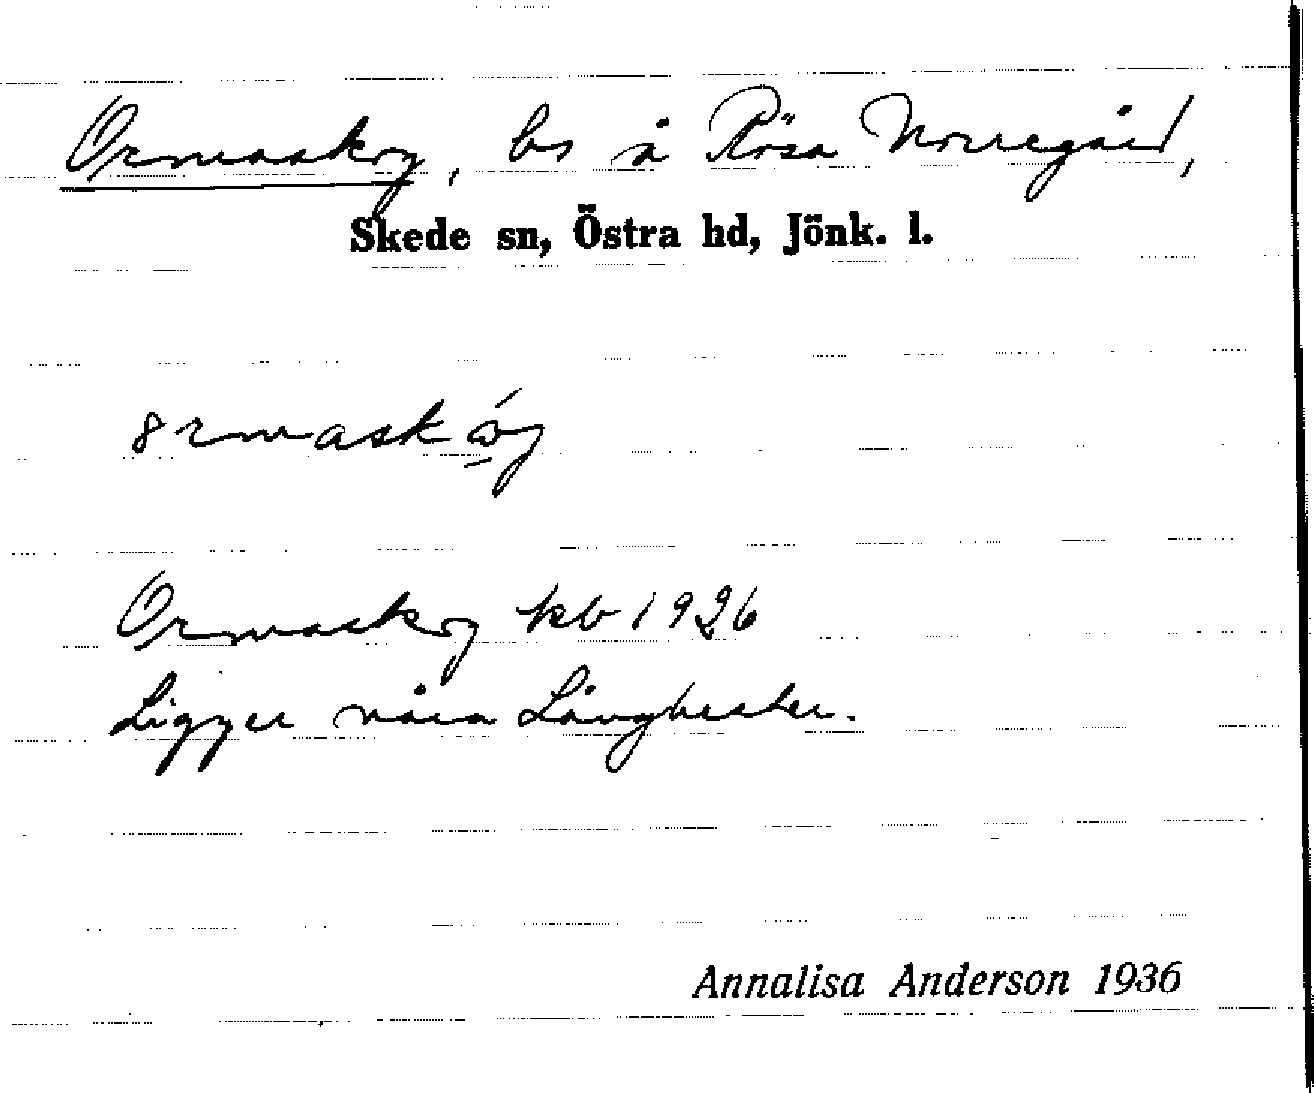 Ormaskog, bs å Rösa Norregård,
Skede sn, Östra hd, Jönk. l.
Ormaskog kb 1926
Ligger nära Långhester.
Annalisa Anderson 1936